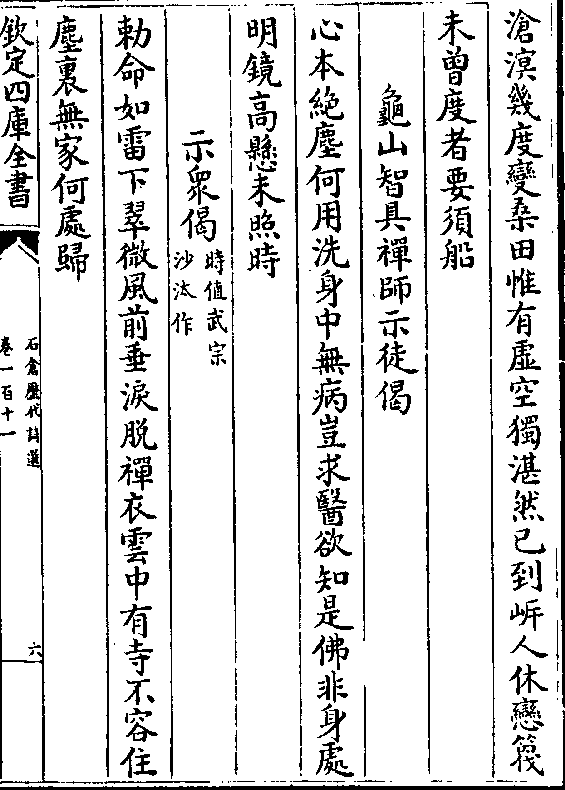 滄溟幾度變桑田惟有虛空獨湛然已到㟁人休戀筏
未曽度者要須船
龜山智具禪師示徒偈
心本絶塵何用洗身中無病豈求醫欲知是佛非身處
明鏡高懸未照時
示衆偈時值武宗沙汰作
勅命如雷下翠微風前垂淚脫禪衣雲中有寺不容住
塵裏無家何處歸
欽定四庫全書
石倉歷代詩選
卷一百十一
六